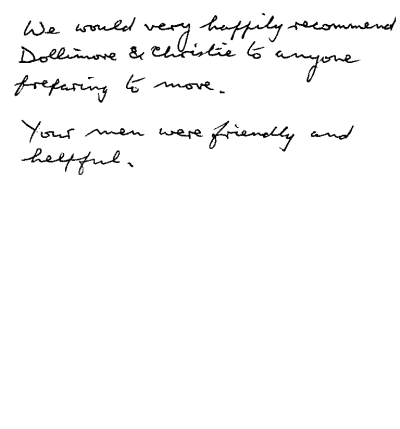 We would very happily recommend
Dollimore & Christie to anyone
preparing to move.
Your men were friendly and
helpful.